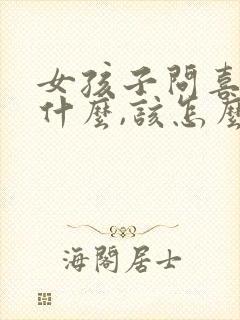 女孩子問喜
什麼,該怎麼
海閣居士